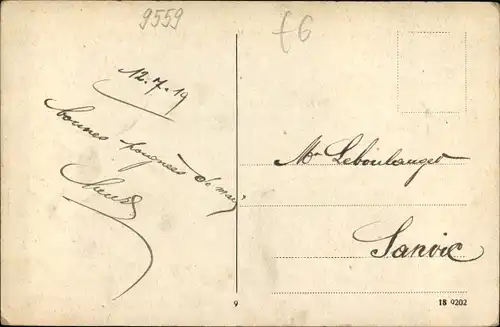 9559
£6
12.7.19
bonnes poignées de main
Mr Leboulanger
Sanvic
9
18 9202